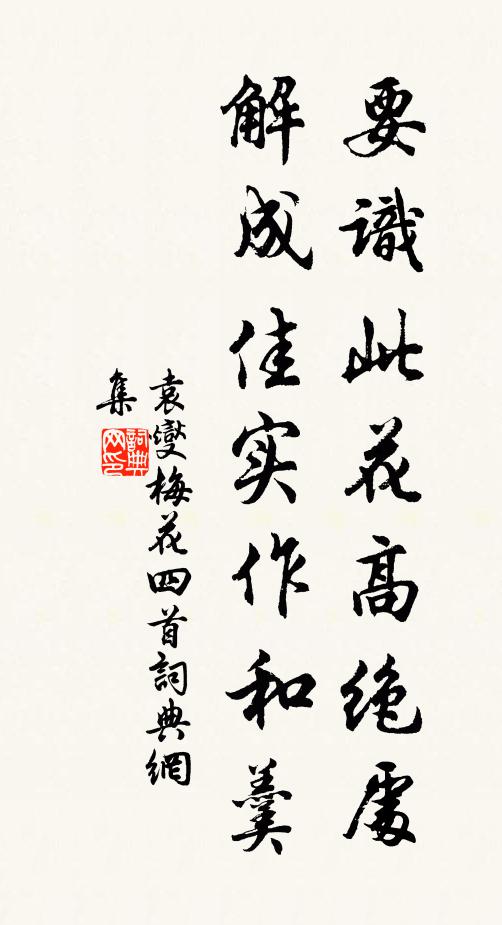 要識此花高绝處
解成佳实作和羹
袁燮梅花四首詞典網
集
詞典网印